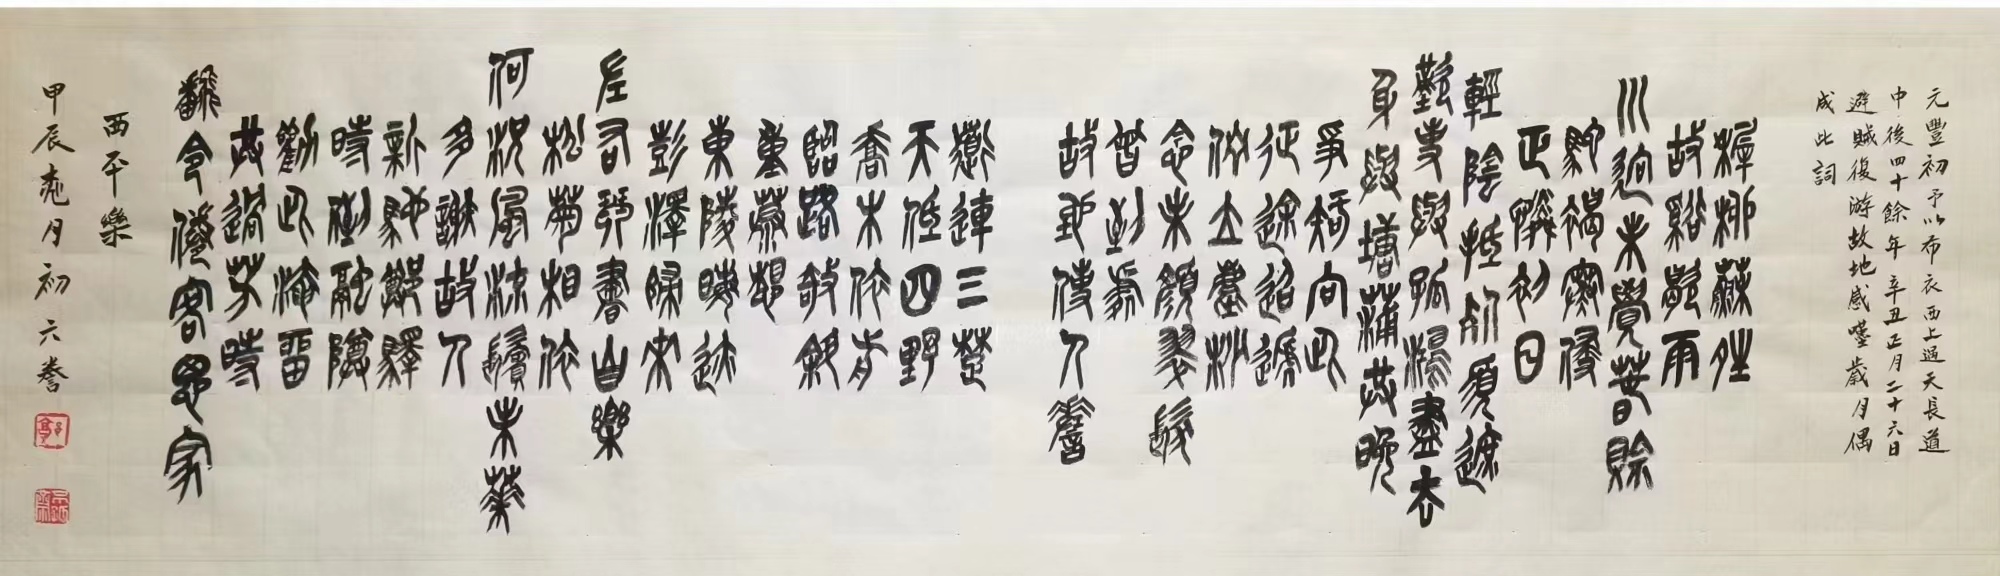 元豐初予以布衣西上過天長道
中後四十餘年辛丑正月二十六日
避賊復游故地感嘆歲月偶
成此詞
稺柳蘇晴
故谿歇雨
川迥未覺春賒
駝褐寒侵
正憐初日
輕陰抵死須遮
歎事與孤鴻盡去
身與塘蒲共晚
爭知向此
征途迢遞
佇立塵沙
念朱顏翠髮
曾到處
故地使人嗟
道連三楚
天低四野
喬木依前
臨路敧斜
重慕想
東陵晦迹
彭澤歸來
左右琴書自樂
松菊相依
何況風流鬢未華
多謝故人
親馳鄭驛
時倒融尊
勸此淹留
共過芳時
翻令倦客思家
西平樂
甲辰月初六誊